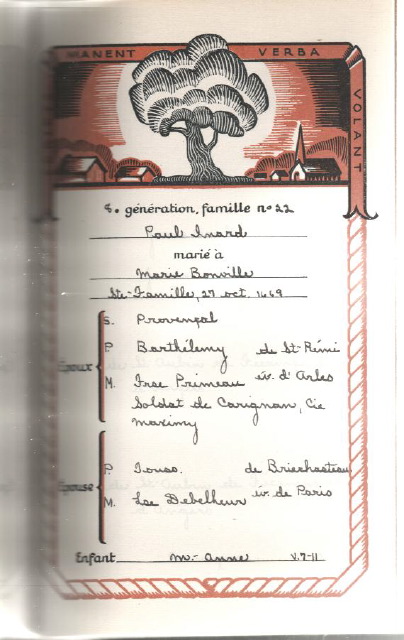 MANENT VERBA
VOLANT
8e génération, famille no 22
Paul Inard
marié à
Marie Bonville
Ste-Famille, 27 oct. 1669
S. Provençal
Époux
P. Barthélemy de St-Rémi
M. Frse Primeau év. d'Arles
Soldat de Carignan, Cie
Maximy
Épouse
P. Touss. de
M. Lse Debelheur év. de Paris
Enfant M.-Anne V.7-11